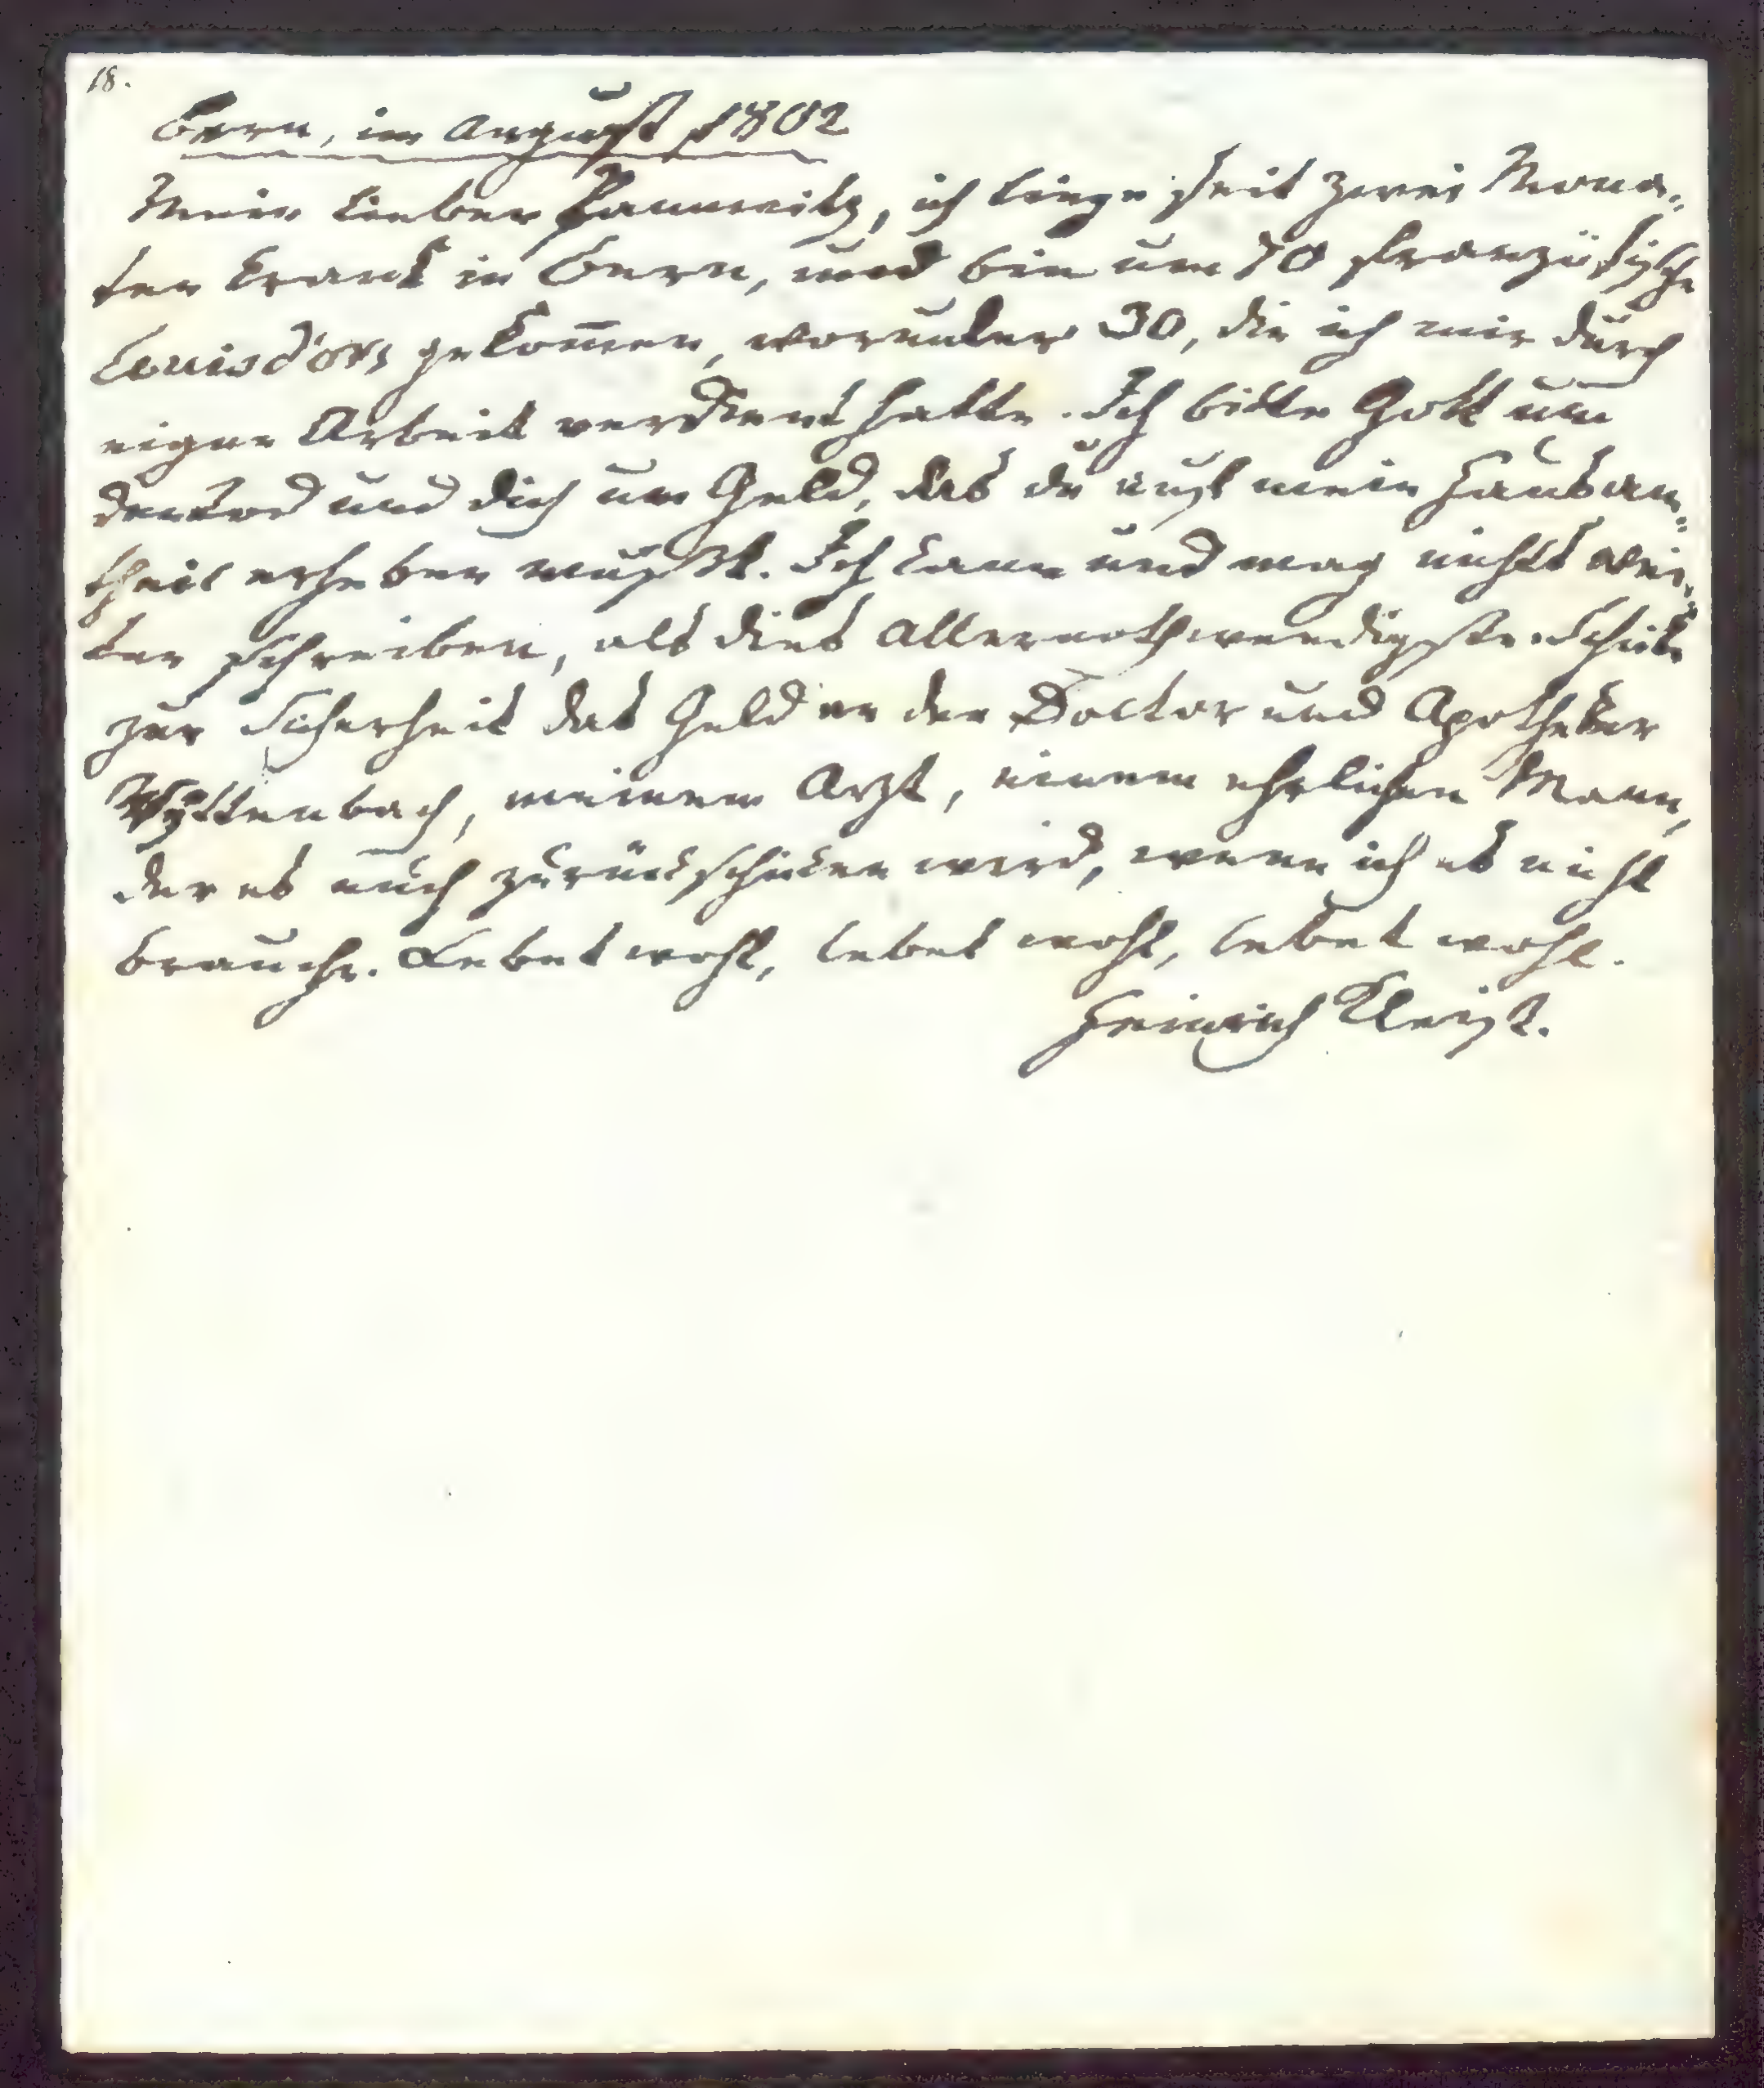 18.
Bern, im August 1802
Mein lieber Pannwitz, ich liege seit zwei Mona-
ten krank in Bern, und bin um 70 französische
Louisd'ors gekom̄en, worunter 30, die ich mir durch
eigne Arbeit verdient hatte. Ich bitte Gott um
den Tod und dich um Geld, das du auf mein Hausan-
theil erheben mußt. Ich kann und mag nichts wei-
ter schreiben, als dies Allernothwendigste. Schicke
zur Sicherheit das Geld an den Doctor und Apotheker
Wyttenbach, meinem Arzt, einem ehrlichen Mann,
der es euch zurückschicken wird, wenn ich es nicht
brauche. Lebet wohl, lebet wohl, lebet wohl.
Heinrich Kleist.